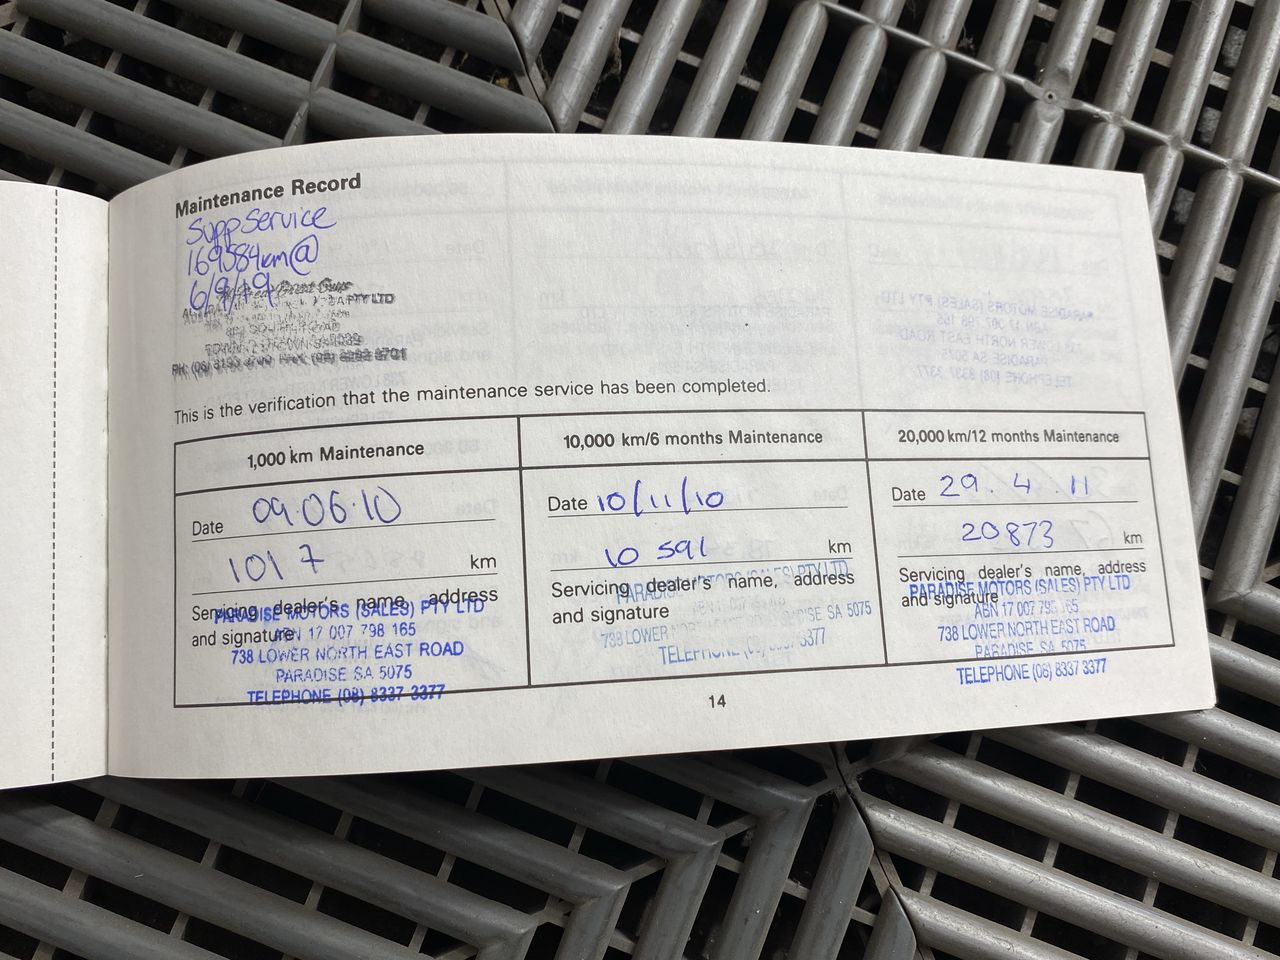 Maintenance Record
Supp Service
169584km@
6/9/19
PTY LTD
This is the verification that the maintenance service has been completed.
1,000 km Maintenance
Date 09.06.10
1017 km
Servicing dealer's name, address
and signature
PARADISE MOTORS (SALES) PTY LTD
ABN 17 007 798 165
738 LOWER NORTH EAST ROAD
PARADISE SA 5075
TELEPHONE (08) 8337 3377
10,000 km/6 months Maintenance
Date 10/11/10
10 591 km
Servicing dealer's name, address
and signature
PARADISE MOTORS (SALES) PTY LTD
738 LOWER PARADISE SA 5075
TELEPHONE (08) 8337 3377
20,000 km/12 months Maintenance
Date 29.4.11
20873 km
Servicing dealer's name, address
and signature
PARADISE MOTORS (SALES) PTY LTD
ABN 17 007 798 165
738 LOWER NORTH EAST ROAD
PARADISE SA 5075
TELEPHONE (08) 8337 3377
14